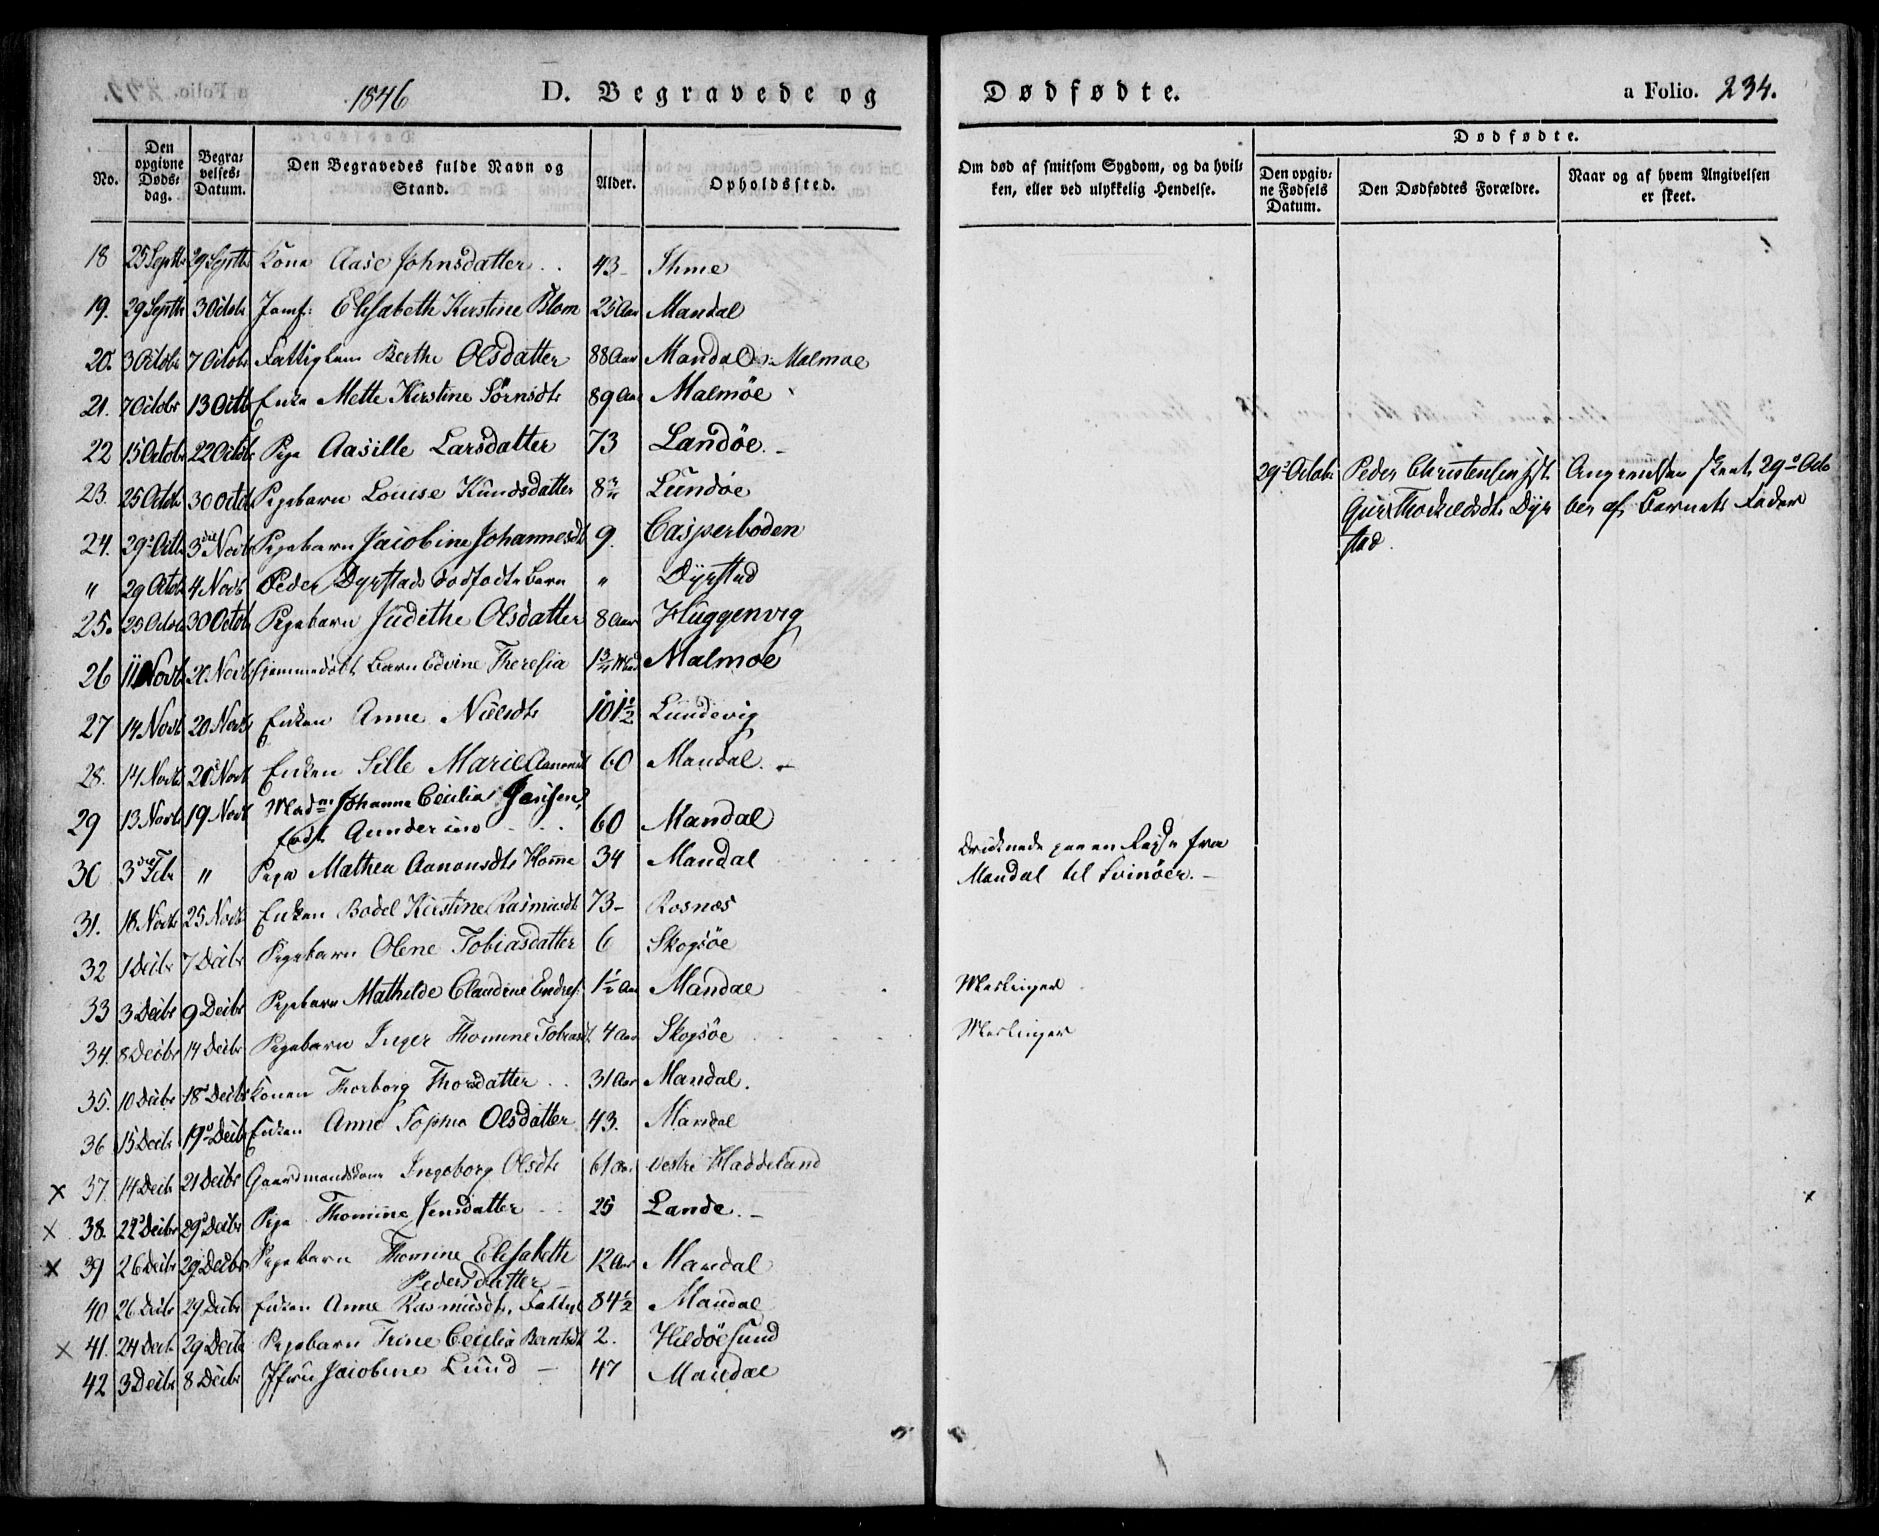 1846 D. Begravede og Dødfødte. a Folio. 234.
No. Den opgivne Døds-dag. Begra-velses-Datum. Den Begravedes fulde Navn og Stand. Alder. Opholdssted.
Om død af smitsom Sygdom, og da hvil-ken, eller ved ulykkelig Hendelse.
Dødfødte.
Den opgiv-ne Fødsels Datum. Den Dødfødtes Forældre. Naar og af hvem Angivelsen er skeet.
18 25 Septbr 29 Septbr Kone Aase Johnsdatter 43 Ihme
19. 29 Septbr 3 Octobr Jomf: Elisabeth Kirstine Blom 25 Aar Mandal
20. 3 Octobr 7 Octobr Fattiglem Berthe Olsdatter 88 Aar Mandal Malmøe
21. 7 Octobr 13 Octb Enke Mette Kirstine Sörnsdtr 89 Aar Malmöe
22 15 Octobr 22 Octobr Pige Aasille Larsdatter 73 Landöe
23. 25 Octobr 30 Octob Pigebarn Louise Knudsdatter 8 3/4 Lundöe
24. 29de Octb 3die Novb Pigebarn Jacobine Johannesdt 9. Casperboden
" 29 Octob 4 Novb Peder Dyrstads dødfødte Barn " Dyrstad
29de Octobr Peder Christensen Hst. Angivelsen skeet 29de Octo
Guri Thorkildsdtr Dyr ber af Barnets Fader
stad.
25. 25 Octob 30 Octob Pigebarn Judithe Olsdatter 8 Aar Huggenvig
26 11 Novb 20 Novb Barn Edvine Theresia 1 3/4 Malmøe
27 14 Novb 20 Novb Enken Anne Nielsdtr 101 1/2 Lundevig
28. 14 Novb 20 Novb Enken Sille Marie Aanensdt 60 Mandal.
29 13 Novb 19 Novb Madm Johanne Cecilia Jensen,
født Gundersen 60 Mandal
30 3die Febr " Pige Mathea Aanonsdtr Homme 34 Mandal
Druknede paa en Reise fra
Mandal til Svinöer.
31. 18 Novb 25 Novb Enken Bodel Kirstine Rasmusdt 73 Rosnæs
32 1 Decbr 7 Decbr Pigebarn Olene Tobiasdatter 6 Skogsöe
33 3 Decbr 9 Decbr Pigebarn Mathilde Claudine Endres. 1 1/2 Aar Mandal Meslinger
34. 8 Decbr 14 Decbr Pigebarn Inger Thomine Tobiasdt 4 Aar Skogsöe Meslinger
35. 10 Decbr 18 Decbr Konen Thorborg Thorsdatter 31 Aar Mandal.
36 15 Decbr 19de Decbr Enken Anne Sophie Olsdatter 43. Mandal
x 37. 14 Decb 21 Decbr Gaardmandskone Ingeborg Olsdtr 61 Aar Vestre Haddeland
x 38. 22 Decbr 29 Decbr Pige Thomine Jensdatter 25 Lande.
x 39 26 Decb 29 Decbr Pigebarn Thomine Elisabeth
Pedersdatter 12 Aar Mandal
40 26 Decb 29 Decbr Enken Anne Rasmusdtr, Fattig 84 1/2 Mandal
x 41. 24 Decb 29 Decb Pigebarn Trine Cecilia Berntsdt 2. Hildöesund
42 3 Decbr 8 Decbr Jfru Jacobine Lund 47 Mandal